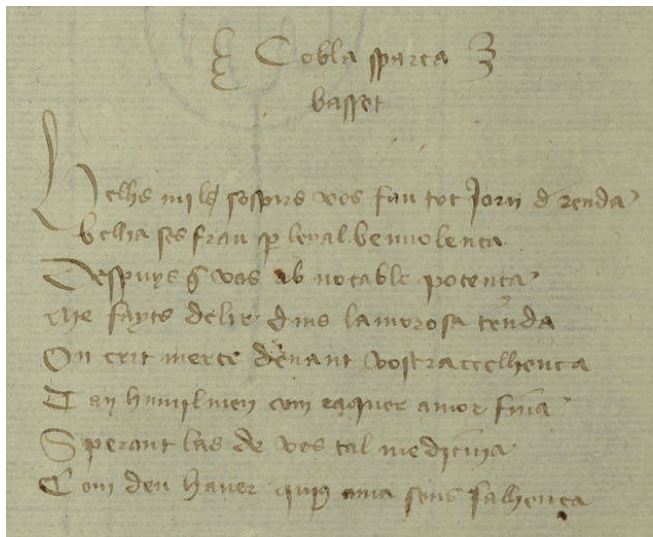 Cobla sparça
basset
Belhs mils sospirs vos fau tot jorn d renda
belha ses frau p leyal benvolença
Despuys q vas ab notable potença
Me fayts delir dins lamorosa tenda
On crit merce denant vostraccelhença
Tan humilmen com raquer amor fina
Sperant las de vos tal medicina
Com deu haver quius ama sens falhença